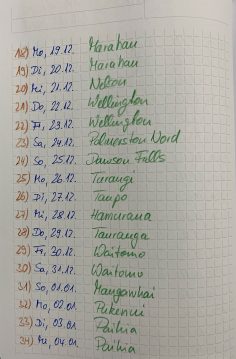 18) Mo, 19.12. Marahau
19) Di, 20.12. Marahau
20) Mi, 21.12. Nelson
21) Do, 22.12. Wellington
22) Fr, 23.12. Wellington
23) Sa, 24.12. Palmerston Nord
24) So, 25.12. Dawson Falls
25) Mo, 26.12. Turangi
26) Di, 27.12. Taupo
27) Mi, 28.12. Hamurana
28) Do, 29.12. Tauranga
29) Fr, 30.12. Waitomo
30) Sa, 31.12. Waitomo
31) So, 01.01. Mangawhai
32) Mo, 02.01. Pukenui
33) Di, 03.01. Paihia
34) Mi, 04.01. Paihia